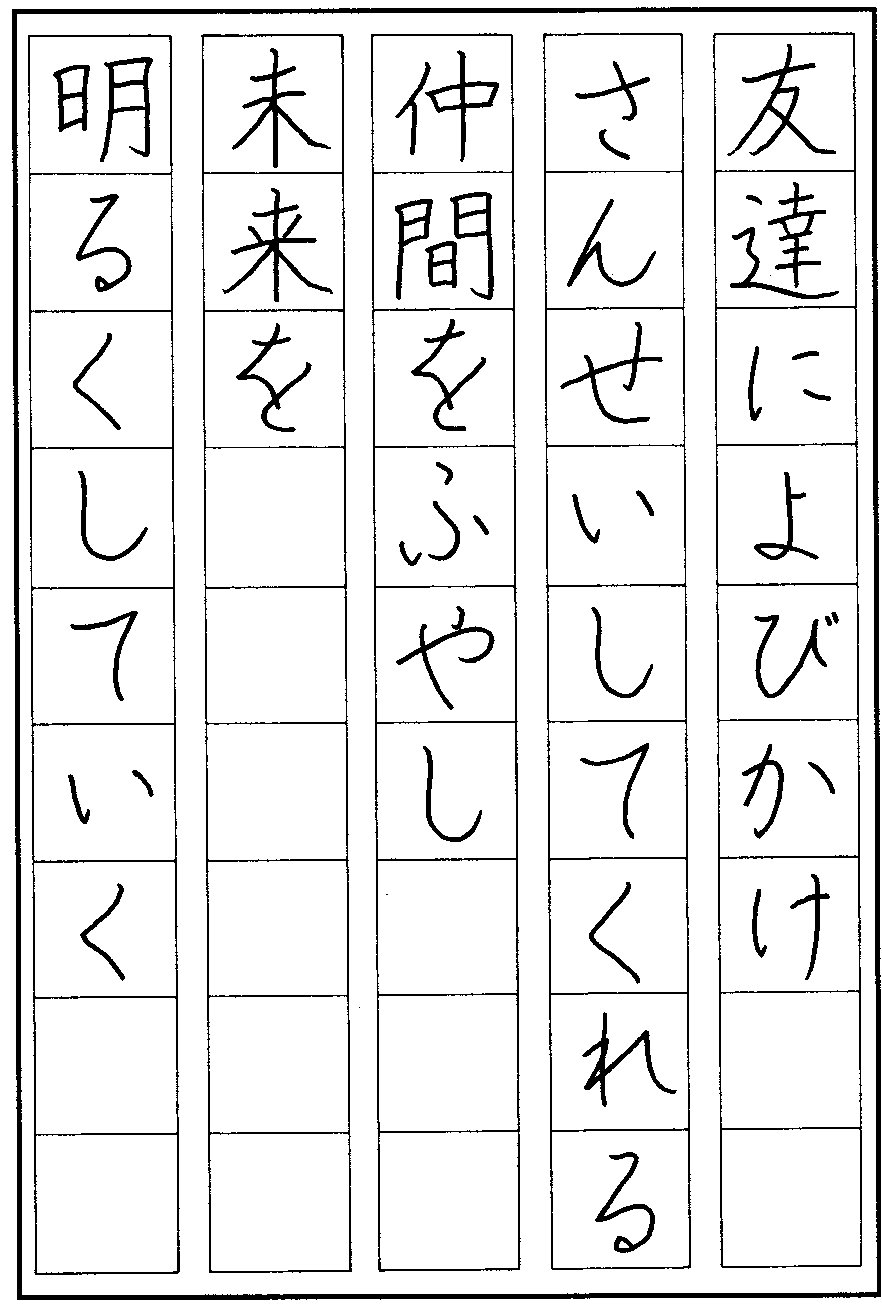 友達によびかけ
さんせいしてくれる
仲間をふやし
未来を
明るくしていく